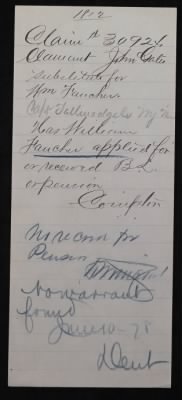 1812
Claim # 30921
Claimant John Gates
substitute for
Wm Fancher.
Co/of Tallmadges My M
Has William
Fancher applied for
or received B L
or pension
Covington
No record for
Pension
no warrant
found
June 10-78
Dent